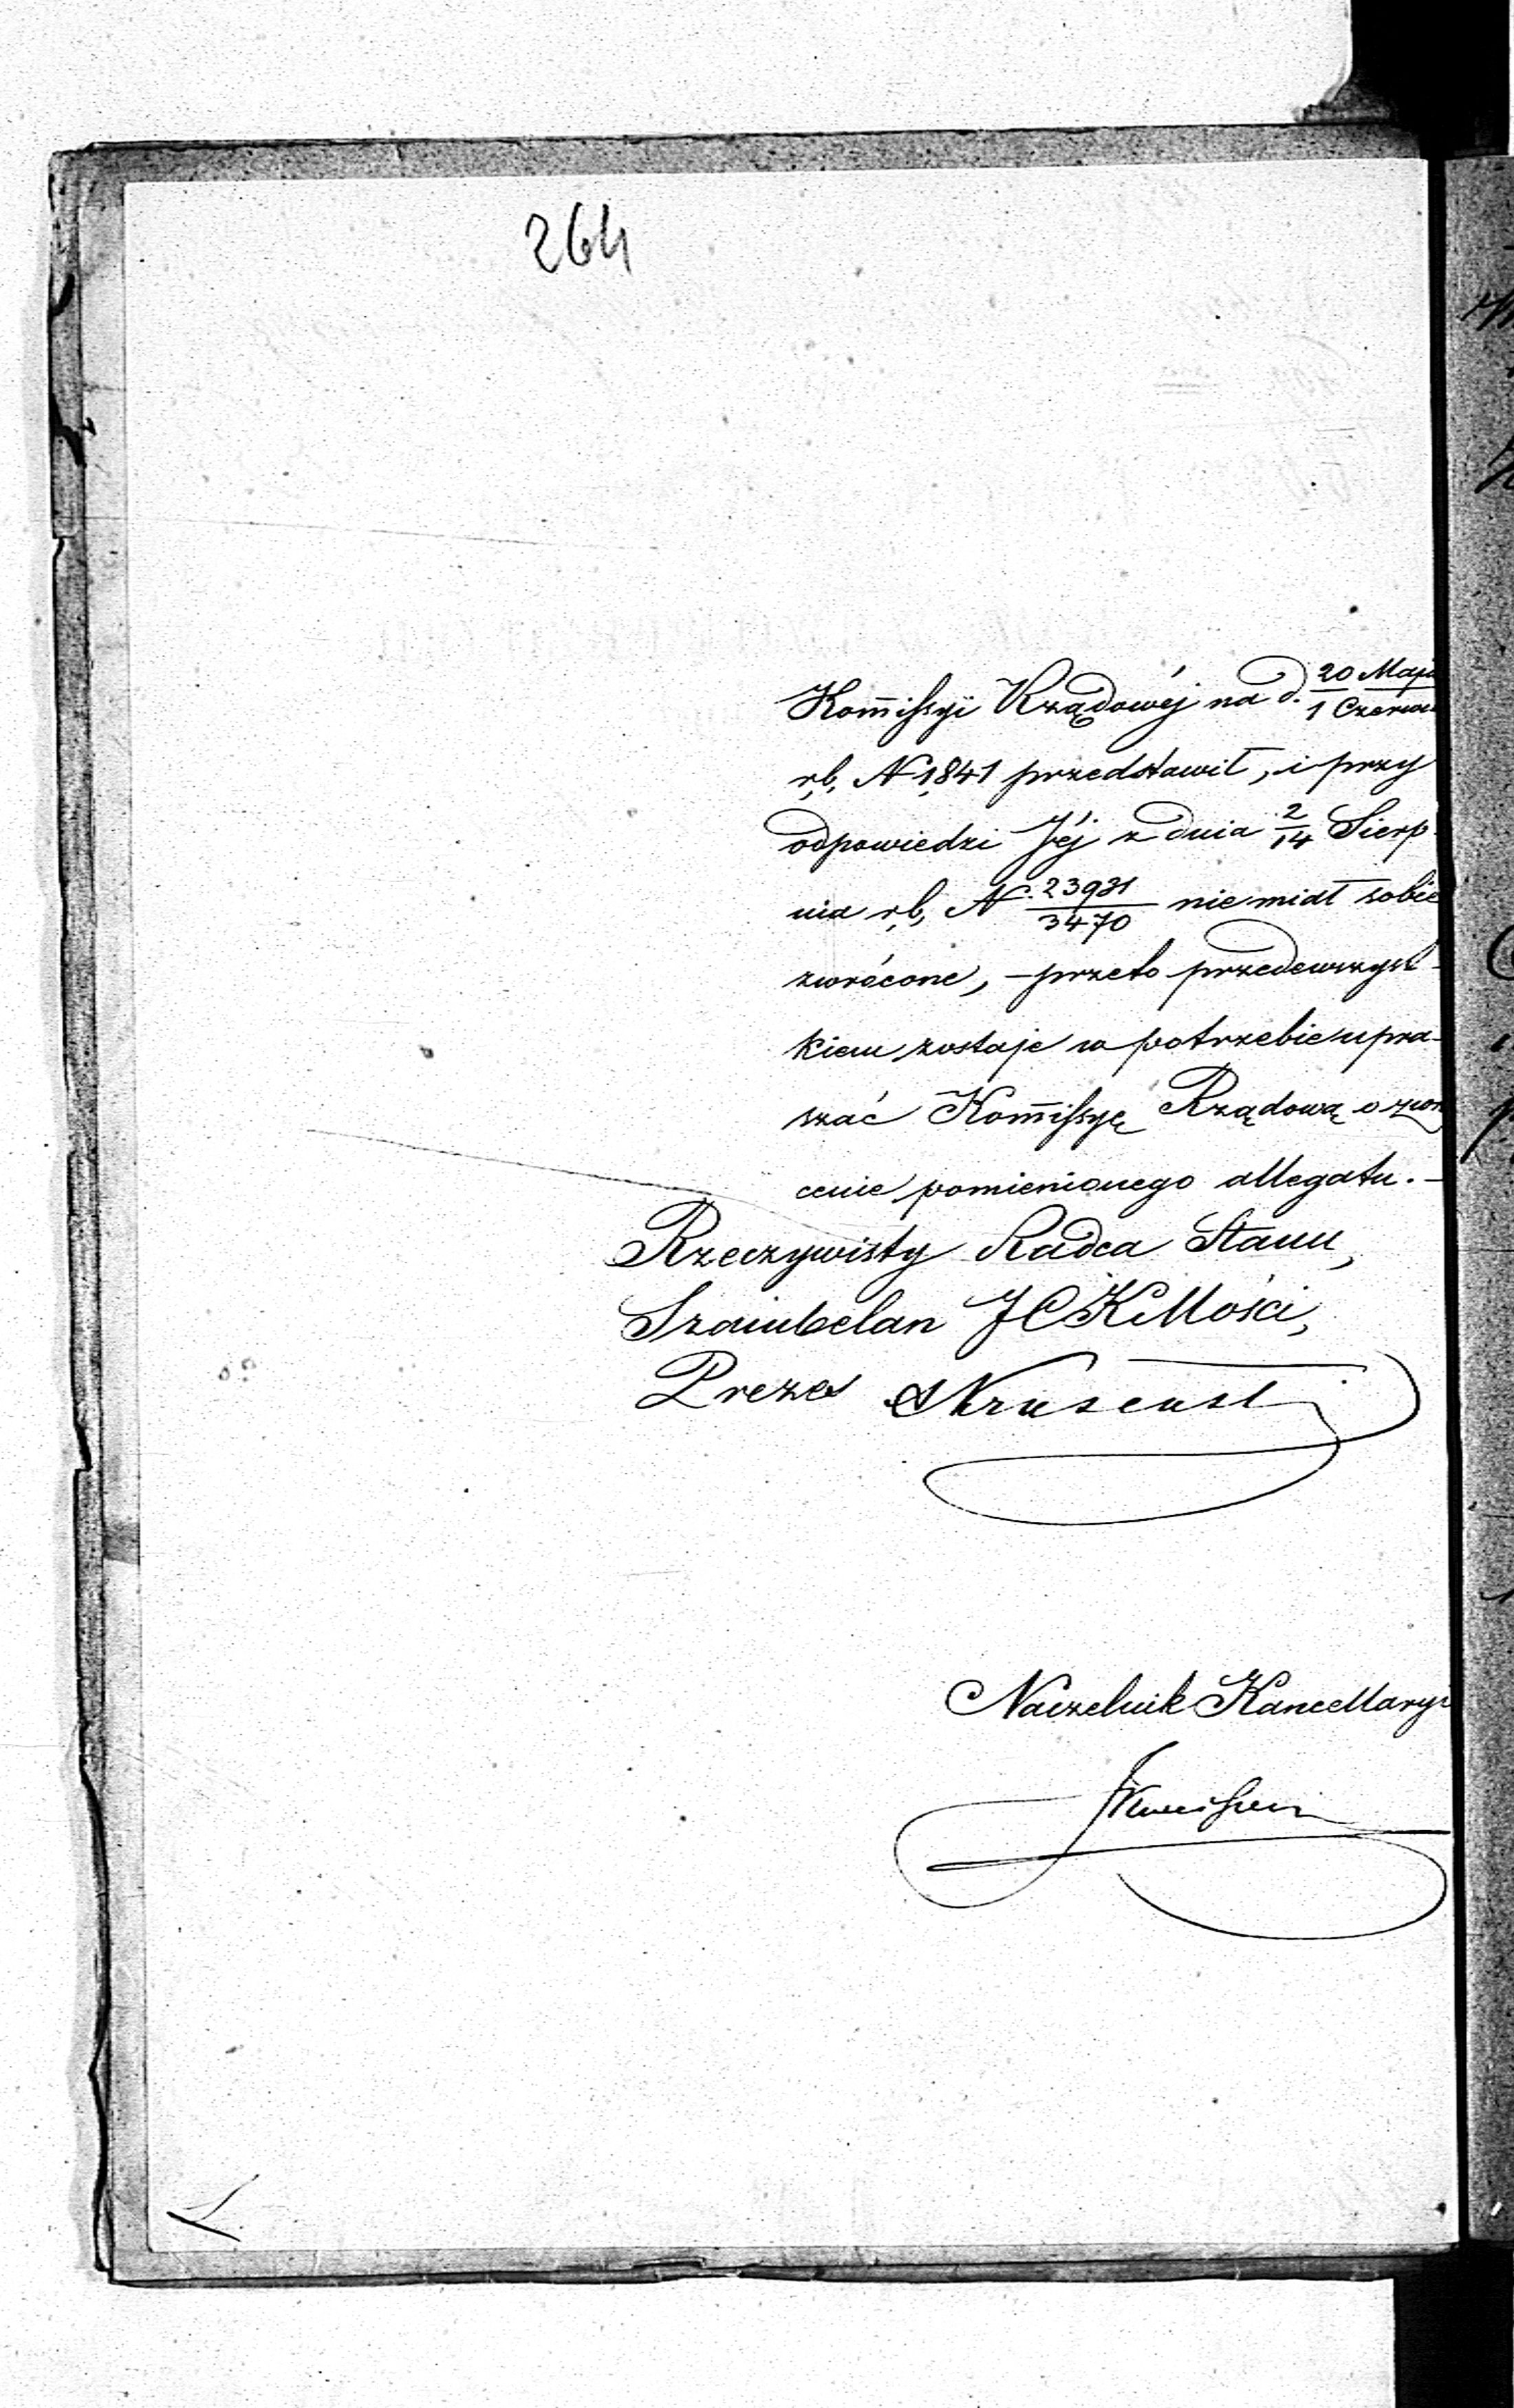 264
Kom̅issyi Rządowéj na d. 20 Maja / 1 Czerwca
r,b, N 1841 przedstawił, i przy
odpowiedzi Jéj z dnia 2/14 Sierp
nia r,b, N. 23931/3470 nie miał sobie
zwrócone, – przeto przedewszyst-
kiem zostaje w potrzebie upra-
szać Kom̅issyę Rządową o zwró
cenie pomienionego allegatu. –
Rzeczywisty Radca Stanu,
Szambelan JCKMości,
Prezes
Naczelnik Kancellaryi